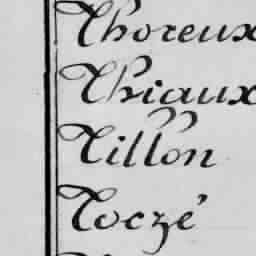 Thoreux
Thiaux
Tillon
Toczé